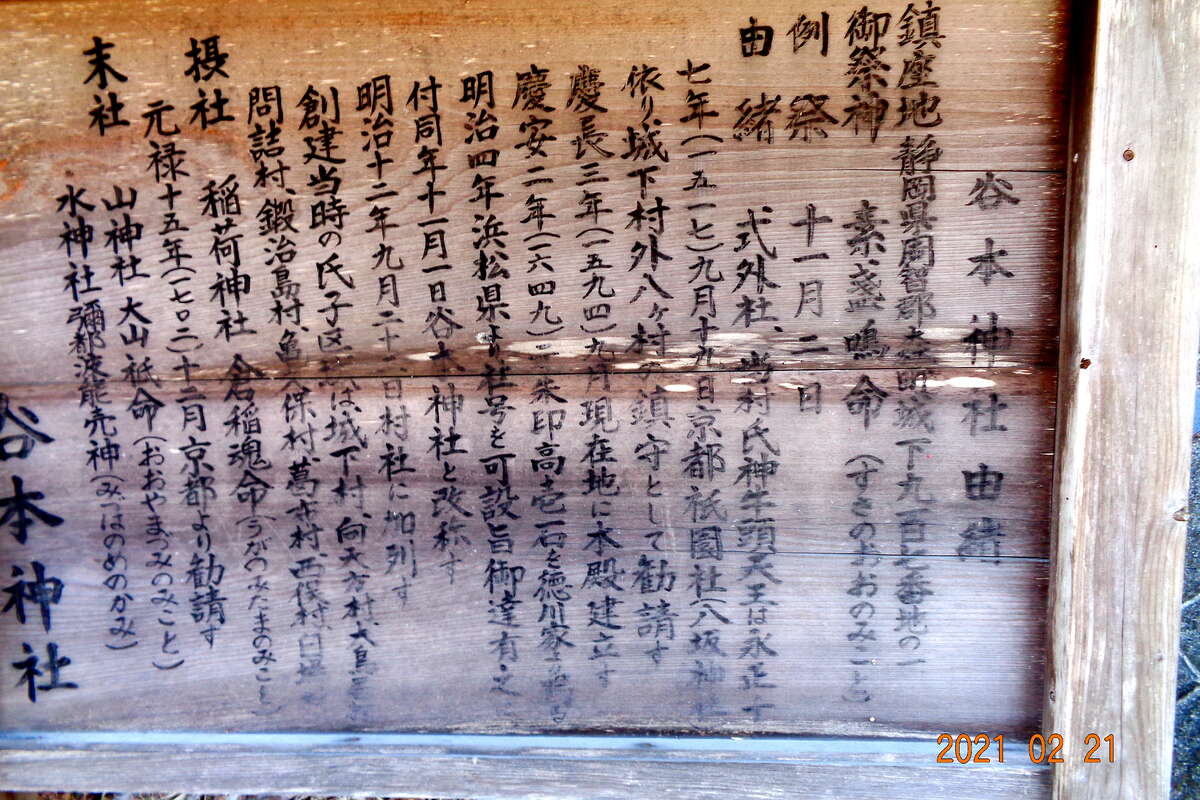 谷本神社由緒
鎮座地 静岡県周智郡 城下九百七番地の一
御祭神 素盞嗚命(すさのおおのみこと)
例祭 十一月二日
由緒 式外社、当村氏神牛頭天王は永正十
七年(一五一七)九月十九日京都祇園社(八坂神社
依り、城下村外八ヶ村の鎮守として勧請す
慶長三年(一五九四)九月現在地に本殿建立す
慶安二年(一六四九)に朱印高壱石を徳川家
明治四年浜松県より社号を可設旨御達有之
付同年十一月一日谷本神社と改称す
明治十二年九月二十 日村社に加列す
創建当時の氏子区 は城下村、向天方村、大鳥
問詰村、鍛治島村、亀久保村、葛 村、西俣村
摂社 稲荷神社 倉稲魂命(うがのみたまのみこと)
元禄十五年(一七〇二)十二月京都より勧請す
末社 山神社 大山祇命(おおやまづみのみこと)
水神社 彌都波能売神(みづはのめのかみ)
谷本神社
2021 02 21